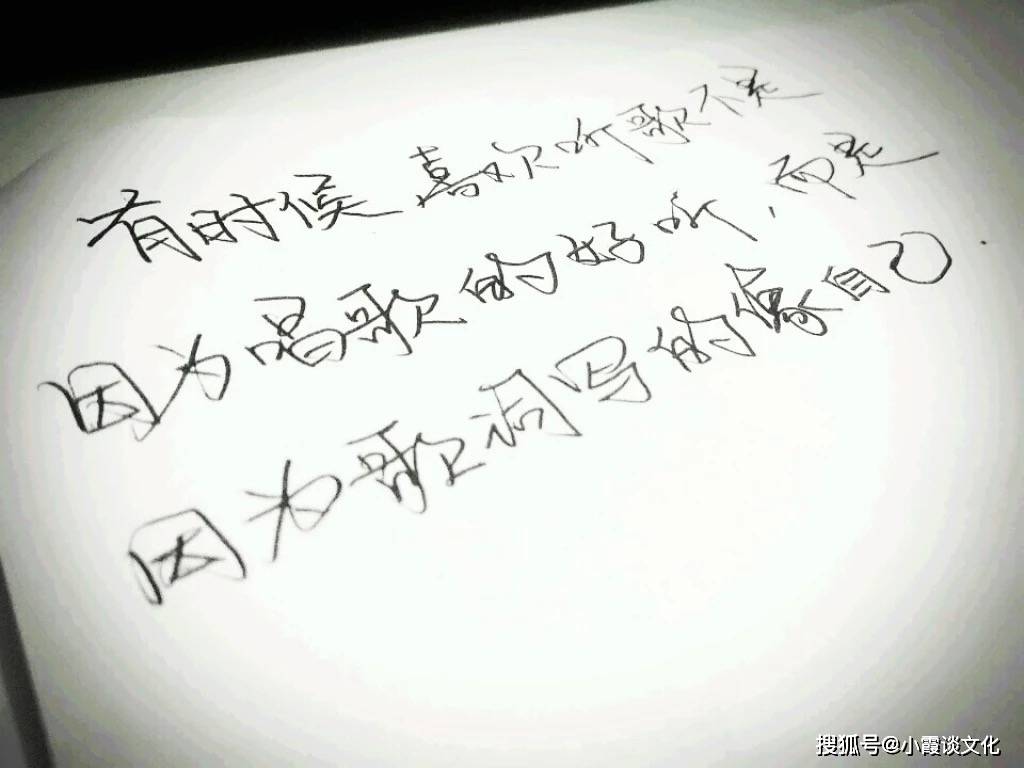 有时候喜欢听歌不是
因为唱歌的好听，而是
因为歌词写的像自己.
搜狐号@小霞谈文化